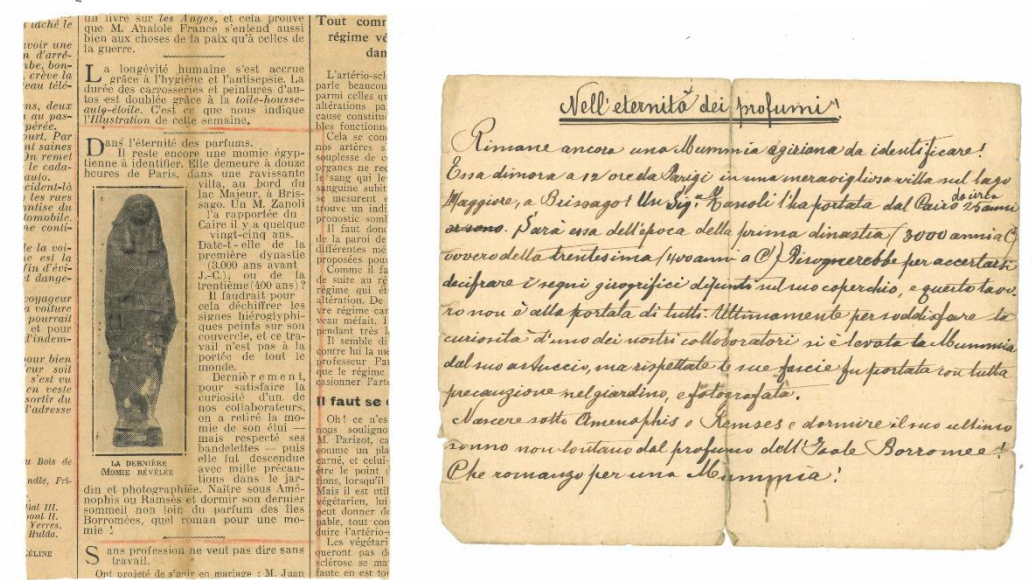 taché le
voir une
n d'arrê-
be, bon-
crève la
eau télé-
ns, deux
au pas-
pérée.
ourt. Par
nt saines
On remet
le cada-
auto.
cident-là
les rues
ntise du
tomobile.
ne conti-
le la voi-
ne est la
fin d'évi-
t dange-
voyageur
a voiture
pourrait
et pour
l'indem-
pour bien
eur soit
s'est vu
en veste
sortir du
l'adresse
u Bois de
ndie, Fri-
ial III.
Yerres.
Hulda.
ÉLINE
un livre sur les Anges, et cela prouve
que M. Anatole France s'entend aussi
bien aux choses de la paix qu'à celles de
la guerre.
La longévité humaine s'est accrue
grâce à l'hygiène et l'antisepsie. La
durée des carrosseries et peintures d'au-
tos est doublée grâce à la toile-housse-
auto-étoile. C'est ce que nous indique
l'Illustration de cette semaine.
Dans l'éternité des parfums.
Il reste encore une momie égyp-
tienne à identifier. Elle demeure à douze
heures de Paris, dans une ravissante
villa, au bord du
lac Majeur, à Bris-
sago. Un M. Zanoli
l'a rapportée du
Caire il y a quelque
vingt-cinq ans.
Date-t-elle de la
première dynastie
(3.000 ans avant
J.-C.), ou de la
trentième (400 ans) ?
Il faudrait pour
cela déchiffrer les
signes hiéroglyphi-
ques peints sur son
couvercle, et ce tra-
vail n'est pas à la
portée de tout le
monde.
Dernièrement,
pour satisfaire la
curiosité d'un de
nos collaborateurs,
on a retiré la mo-
mie de son étui —
mais respecté ses
bandelettes — puis
elle fut descendue
avec mille précau-
tions dans le jar-
din et photographiée. Naître sous Amé-
nophis ou Ramsès et dormir son dernier
sommeil non loin du parfum des Iles
Borromées, quel roman pour une mo-
mie !
LA DERNIÈRE
MOMIE RÉVÉLÉE
Sans profession ne veut pas dire sans
travail.
Ont projeté de s'unir en mariage : M. Juan
Tout comm
régime vé
dan
L'artério-scl
parle beaucou
parmi celles qu
altérations pa
cause constitu
bles fonctionn
Cela se com
nos artères s'
souplesse de c
organes ne reç
le sang qui le
sanguine subit
se mesurent e
trouve un indi
pronostic som
Il faut donc
de la paroi de
différentes mé
proposées pour
Comme il fa
de suite au ré
régime qui ét
altération. De
vre régime car
veau méfait. I
pendant très l
Il semble di
contre lui la me
professeur Pa
que le régime
casionner l'arté
Il faut se
Oh ! ce n'es
nous souligno
M. Parizot, ca
comme un pla
carné, et celui-
être le point d
tions, lorsqu'il
Mais il est util
végétarien, lui
peut donner de
pable, tout com
duire l'artério-s
Les végétari
queront pas de
clérose se ma
faute en est tou
Nell'eternità dei profumi!
Rimane ancora una Mummia egiziana da identificare!
Essa dimora a 12 ore da Parigi in una meravigliosa villa sul lago
Maggiore, a Brissago! Un Sig.r Zanoli l'ha portata dal Cairo da circa 25 anni
or sono. Sarà essa dell'epoca della prima dinastia (3000 anni a C)
ovvero della trentesima (400 anni a C) Bisognerebbe per accertarsi
decifrare i segni girogrifici dipinti sul suo coperchio, e questo lavo-
ro non è alla portata di tutti. Ultimamente per soddisfare la
curiosità d'uno dei nostri collaboratori si è levata la Mummia
dal suo astuccio, ma rispettate le sue fascie fu portata con tutta
precauzione nel giardino, e fotografata.
Nascere sotto Amenophis o Ramses e dormire il suo ultimo
sonno non lontano dal profumo dell'Isole Borromee!
Che romanzo per una Mummia!